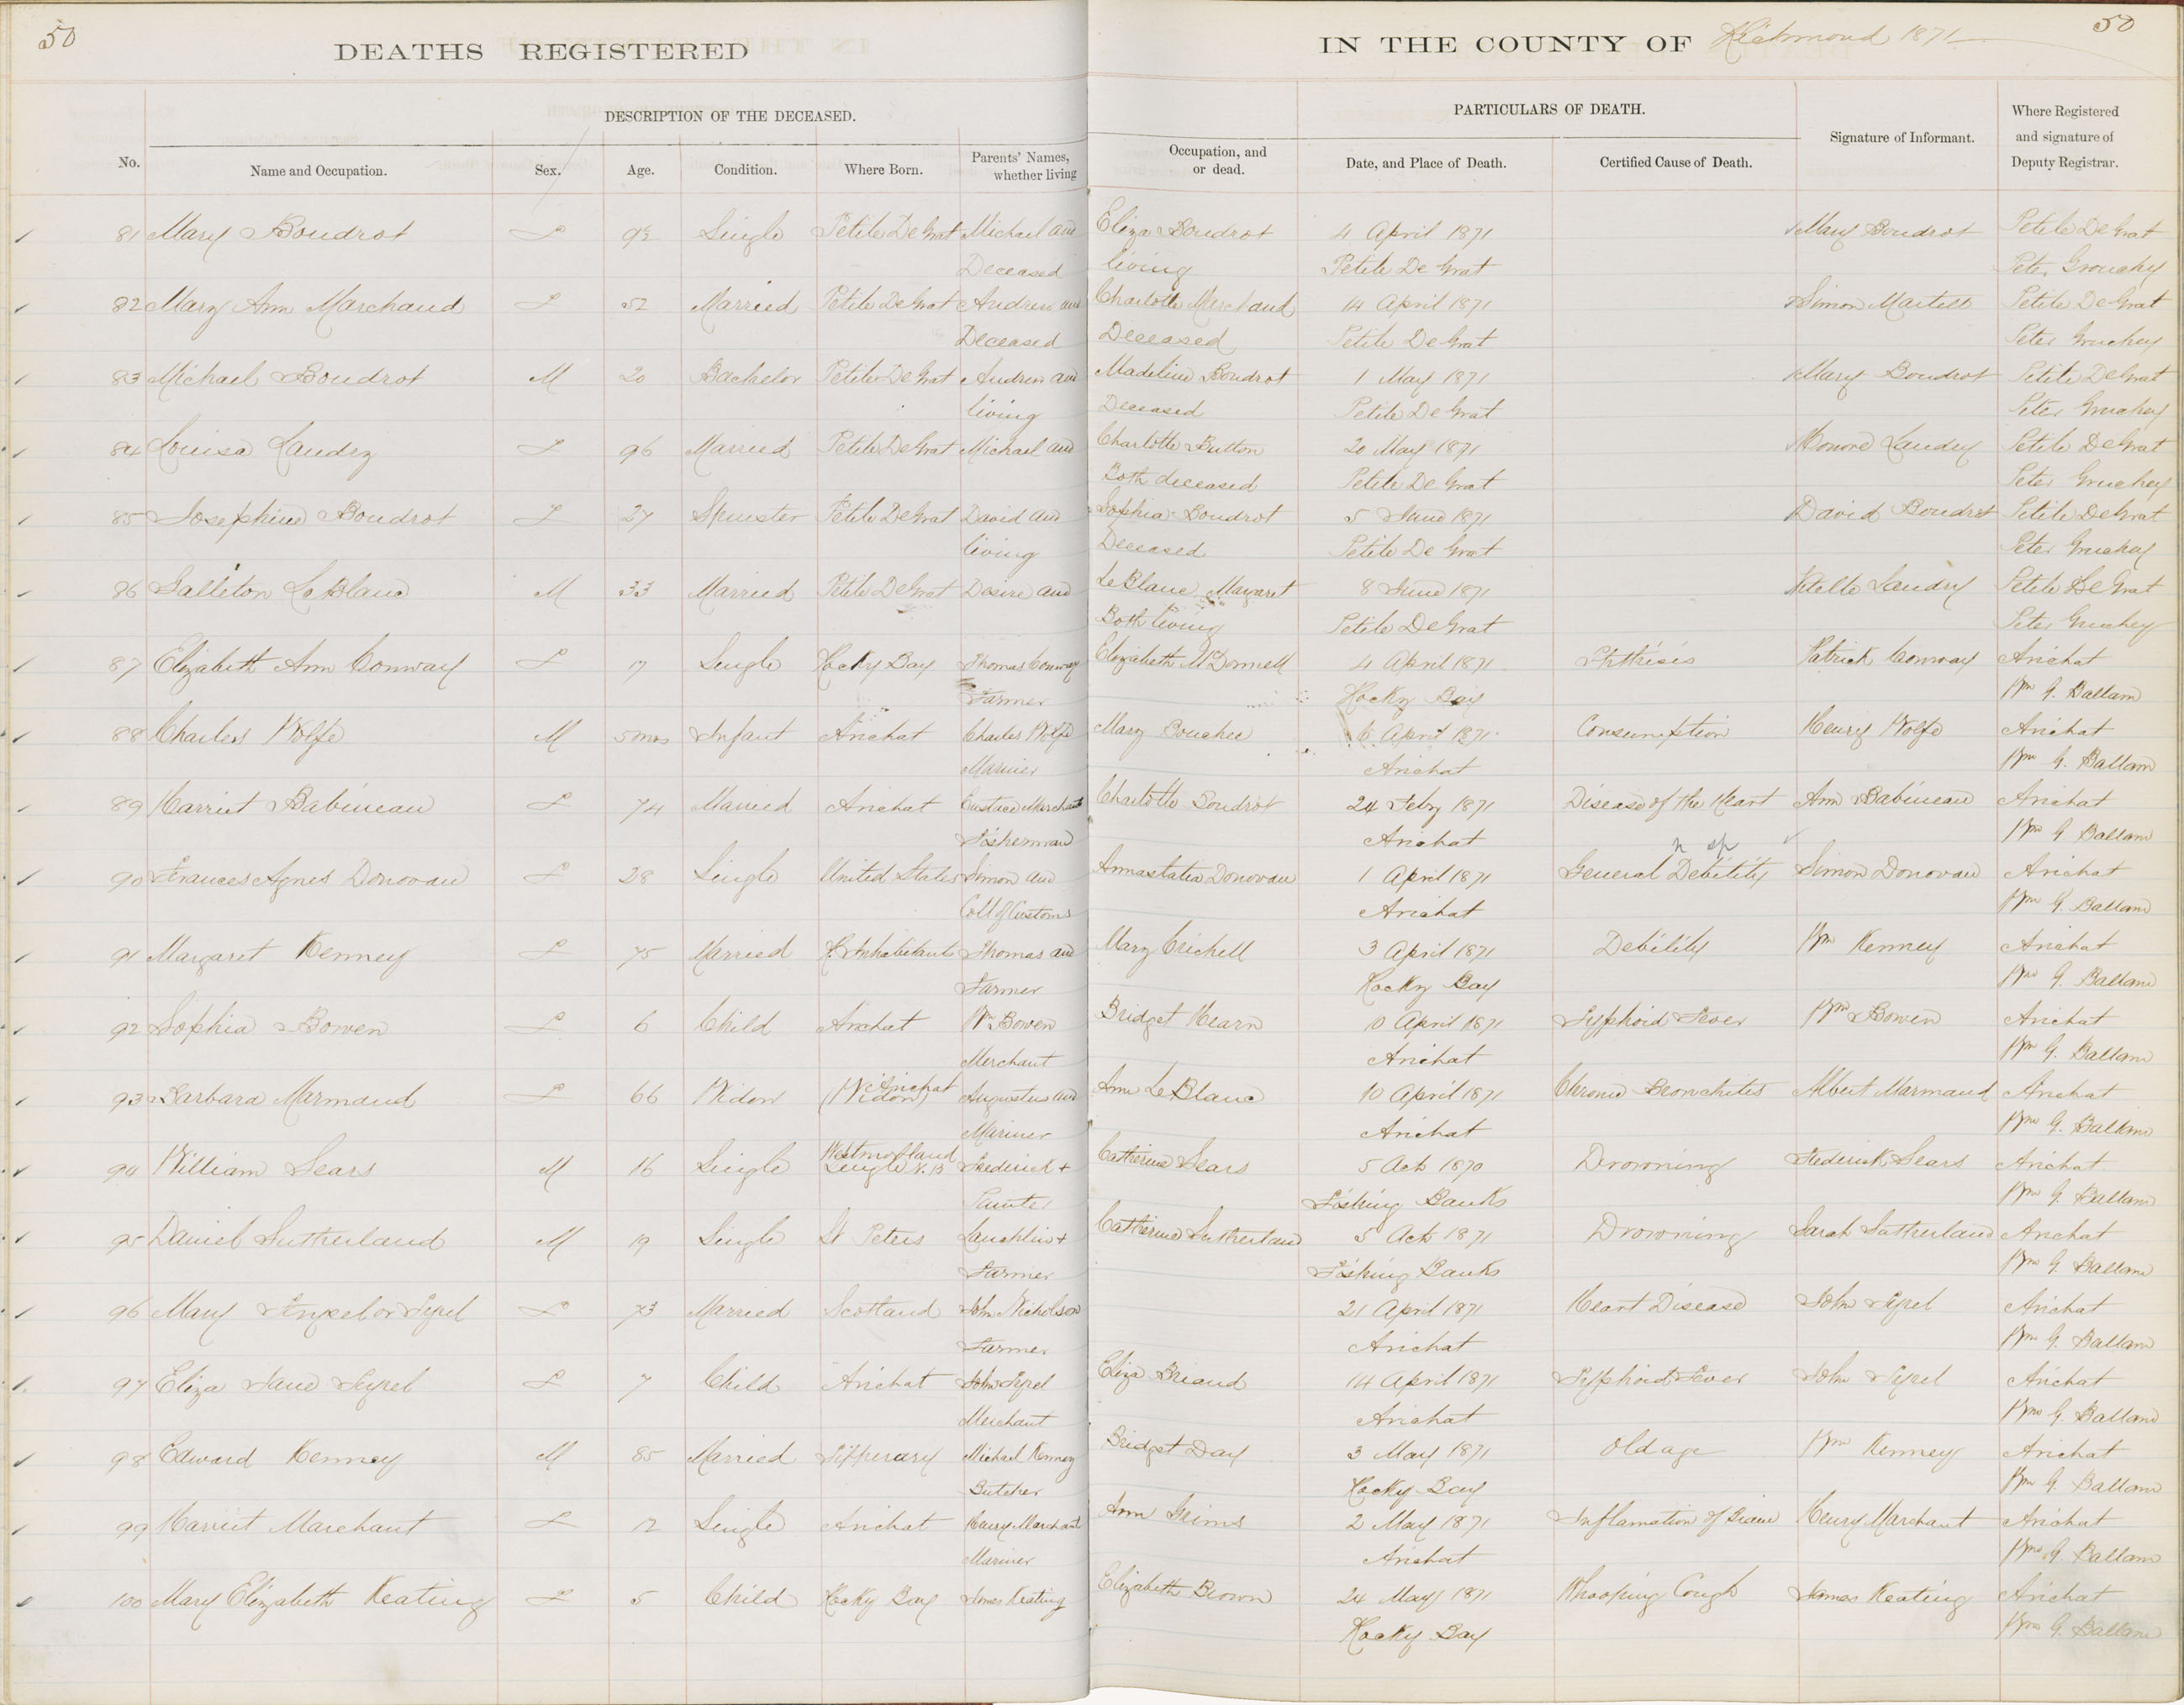 50
50
DEATHS REGISTERED
IN THE COUNTY OF Richmond 1871
DESCRIPTION OF THE DECEASED.
PARTICULARS OF DEATH.
No.
Name and Occupation.
Sex.
Age.
Condition.
Where Born.
Parents' Names, whether living
Occupation, and or dead.
Date, and Place of Death.
Certified Cause of Death.
Signature of Informant.
Where Registered and signature of Deputy Registrar.
81 Mary Boudrot F Single Petite De Grat Michael and Eliza Boudrot 4 April 1871 Mary Boudrot Petite De Grat
Deceased living Petite De Grat Peter Grouchy
82 Mary Ann Marchand F 52 Married Petite De Grat Andrew and Charlotte Marchand 14 April 1871 Simon Martell Petite De Grat
Deceased Deceased Petite De Grat Peter Gruchy
83 Michael Boudrot M 20 Bachelor Petite De Grat Andrew and Madeline Boudrot 1 May 1871 Mary Boudrot Petite De Grat
living Deceased Petite De Grat Peter Gruchey
84 Louisa Landry F 96 Married Petite De Grat Michael and Charlotte Button 20 May 1871 Honore Landry Petite De Grat
Both deceased Petite De Grat Peter Gruchey
85 Josephine Boudrot F 27 Spinster Petite De Grat David and Sophia Boudrot 5 June 1871 David Boudrot Petite De Grat
living Deceased Petite De Grat Peter Gruchey
86 LeBlanc M 33 Married Petite De Grat Desire and LeBlanc Margaret 8 June 1871 Landry Petite De Grat
Both living Petite De Grat Peter Gruchey
87 Elizabeth Ann Conway F 17 Single Rocky Bay Thomas Conway Elizabeth McDonnell 4 April 1871 Phthisis Patrick Conway Arichat
Farmer Rocky Bay Wm G. Ballam
88 Charles Wolfe M 5 mos Infant Arichat Charles Wolfe Mary Bouchee 6 April 1871 Consumption Henry Wolfe Arichat
Mariner Arichat Wm G. Ballam
89 Harriet Babineau F 74 Married Arichat Eustace Marchant Charlotte Boudrot 24 Feby 1871 Disease of the Heart Ann Babineau Arichat
Fisherman Arichat Wm G Ballam
90 Frances Agnes Donovan F 28 Single United States Simon and Annastatia Donovan 1 April 1871 General Debility Simon Donovan Arichat
Coll of Customs Arichat Wm G. Ballam
91 Margaret Kenney F 75 Married R. Inhabitants Thomas and Mary Crichell 3 April 1871 Debility Wm Kenney Arichat
Farmer Rocky Bay Wm G. Ballam
92 Sophia Bowen F 6 Child Arichat Wm Bowen Bridget Hearn 10 April 1871 Typhoid Fever Wm Bowen Arichat
Merchant Arichat Wm G. Ballam
93 Barbara Marmaud F 66 Widow Arichat (Widow) Augustus and Ann LeBlanc 10 April 1871 Chronic Bronchites Albert Marmaud Arichat
Mariner Arichat Wm G. Ballam
94 William Sears M 16 Single Westmorland Single N.B Frederick + Catherine Sears 5 Oct 1870 Drowning Frederick Sears Arichat
Painter Fishing Banks Wm G Ballam
95 Daniel Sutherland M 19 Single St Peters Lauchlin + Catherine Sutherland 5 Oct 1871 Drowning Sarah Sutherland Arichat
Farmer Fishing Banks Wm G. Ballam
96 Mary or Syrel F 73 Married Scotland John Nicholson 21 April 1871 Heart Disease John Syrel Arichat
Farmer Arichat Wm G. Ballam
97 Eliza Jane Syrel F 7 Child Arichat John Syrel Eliza Briand 14 April 1871 Typhoid Fever John Syrel Arichat
Merchant Arichat Wm G. Ballam
98 Edward Kenney M 85 Married Tipperary Michael Kenney Bridget Day 3 May 1871 Old age Wm Kenney Arichat
Butcher Rocky Bay Wm G. Ballam
99 Harriet Marchant F 12 Single Arichat Henry Marchant Ann Grims 2 May 1871 Inflamation of Brain Henry Marchant Arichat
Mariner Arichat Wm G. Ballam
100 Mary Elizabeth Keating F 5 Child Rocky Bay James Keating Elizabeth Brown 24 May 1871 Whooping Cough James Keating Arichat
Rocky Bay Wm G. Ballam